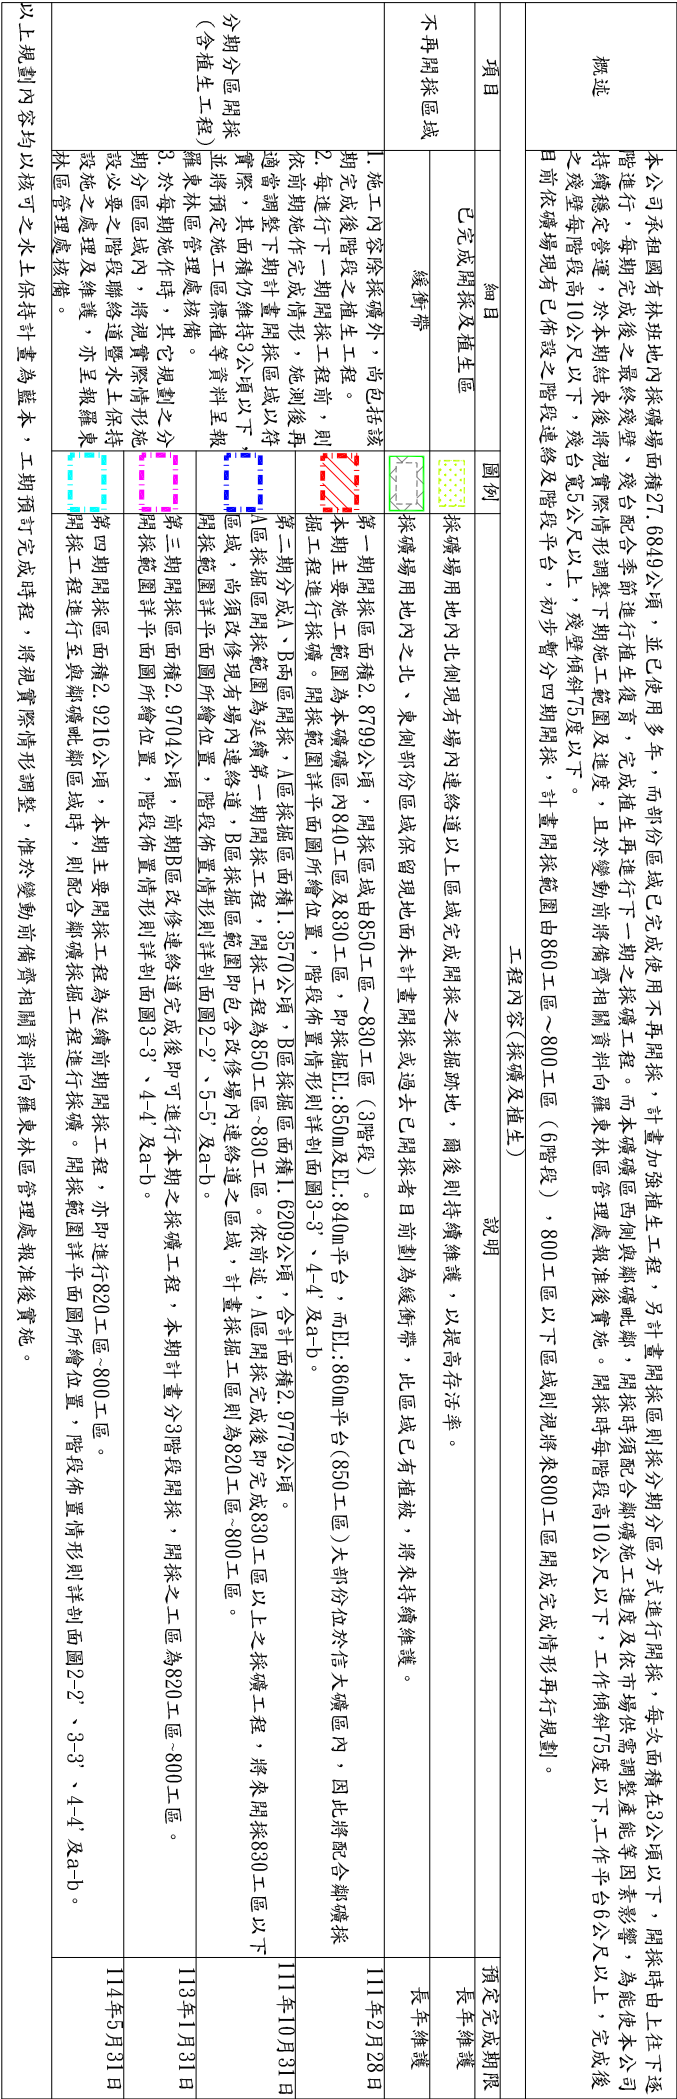 概述
本公司承租國有林班地內採礦場面積27.6849公頃，並已使用多年，而部份區域已完成使用不再開採，計畫加強植生工程，另計畫開採區則採分期分區方式進行開採，每次面積在3公頃以下，開採時由上往下逐
階進行，每期完成後之最終殘壁、殘台配合季節進行植生復育，完成植生再進行下一期之採礦工程。而本礦礦區西側與鄰礦毗鄰，開採時須配合鄰礦施工進度及依市場供需調整產能等因素影響，為能使本公司
持續穩定營運，於本期結束後將視實際情形調整下期施工範圍及進度，且於變動前將備齊相關資料向羅東林區管理處報准後實施。開採時每階段高10公尺以下，工作傾斜75度以下,工作平台6公尺以上，完成後
之殘壁每階段高10公尺以下，殘台寬5公尺以上，殘壁傾斜75度以下。
目前依礦場現有已佈設之階段連絡及階段平台，初步暫分四期開採，計畫開採範圍由860工區～800工區（6階段），800工區以下區域則視將來800工區開成完成情形再行規劃。
工程內容(採礦及植生)
項目
細目
圖例
說明
預定完成期限
不再開採區域
已完成開採及植生區
採礦場用地內北側現有場內連絡道以上區域完成開採之採掘跡地，爾後則持續維護，以提高存活率。
長年維護
緩衝帶
採礦場用地內之北、東側部份區域保留現地面未計畫開採或過去已開採者目前劃為緩衝帶，此區域已有植被，將來持續維護。
長年維護
分期分區開採
(含植生工程)
1. 施工內容除採礦外，尚包括該
期完成後階段之植生工程。
2. 每進行下一期開採工程前，則
依前期施作完成情形，施測後再
適當調整下期計畫開採區域以符
實際，其面積仍維持3公頃以下，
並將預定施工區標植等資料呈報
羅東林區管理處核備。
3. 於每期施作時，其它規劃之分
期分區區域內，將視實際情形施
設必要之階段聯絡道暨水土保持
設施之處理及維護，亦呈報羅東
林區管理處核備。
第一期開採區面積2.8799公頃，開採區域由850工區～830工區（3階段）。
本期主要施工範圍為本礦礦區內840工區及830工區，即採掘EL:850m及EL:840m平台，而EL:860m平台(850工區)大部份位於信大礦區內，因此將配合鄰礦採
掘工程進行採礦。開採範圍詳平面圖所繪位置，階段佈置情形則詳剖面圖3-3'、4-4'及a-b。
111年2月28日
第二期分成A、B兩區開採，A區採掘區面積1.3570公頃，B區採掘區面積1.6209公頃，合計面積2.9779公頃。
A區採掘區開採範圍為延續第一期開採工程，開採工程為850工區~830工區。依前述，A區開採完成後即完成830工區以上之採礦工程，將來開採830工區以下
區域，尚須改修現有場內連絡道，B區採掘區範圍即包含改修場內連絡道之區域，計畫採掘工區則為820工區~800工區。
開採範圍詳平面圖所繪位置，階段佈置情形則詳剖面圖2-2'、5-5'及a-b。
111年10月31日
第三期開採區面積2.9704公頃，前期B區改修連絡道完成後即可進行本期之採礦工程，本期計畫分3階段開採，開採之工區為820工區~800工區。
開採範圍詳平面圖所繪位置，階段佈置情形則詳剖面圖3-3'、4-4'及a-b。
113年1月31日
第四期開採區面積2.9216公頃，本期主要開採工程為延續前期開採工程，亦即進行820工區~800工區。
開採工程進行至與鄰礦毗鄰區域時，則配合鄰礦採掘工程進行採礦。開採範圍詳平面圖所繪位置，階段佈置情形則詳剖面圖2-2'、3-3'、4-4'及a-b。
114年5月31日
以上規劃內容均以核可之水土保持計畫為藍本，工期預訂完成時程，將視實際情形調整，惟於變動前備齊相關資料向羅東林區管理處報准後實施。